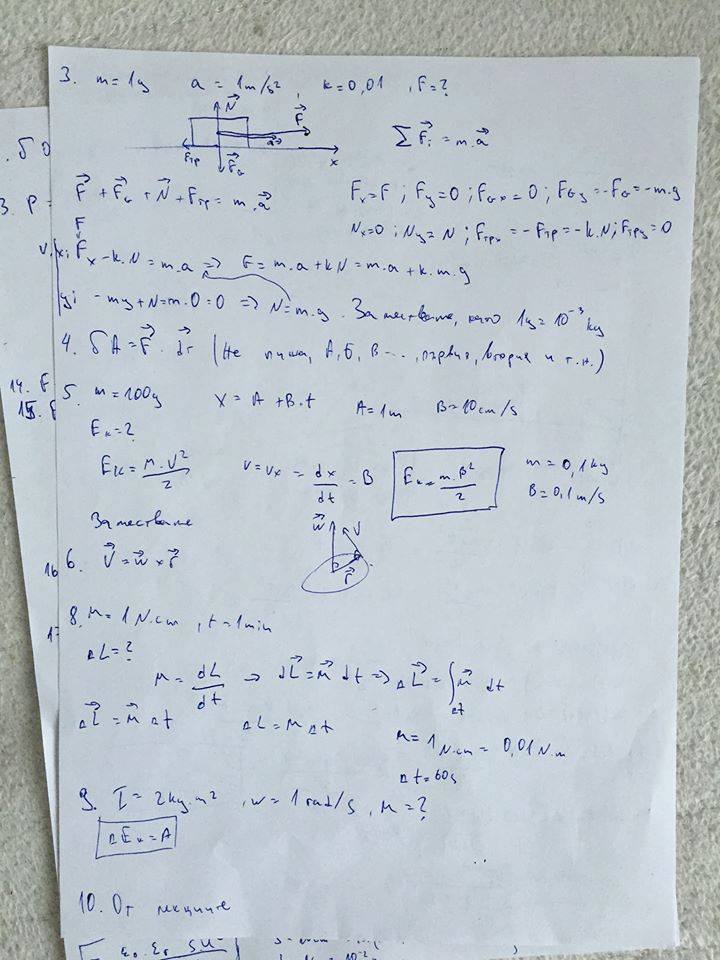 3. m=1g a=1m/s², k=0,01, F=?
N⃗ F⃗ a⃗ Fтр F⃗G x
ΣF⃗i = m.a⃗
F⃗ + F⃗G + N⃗ + F⃗тр = m.a⃗
Fx=F; Fy=0; FGx=0; FGy=-FG=-m.g
Nx=0; Ny=N; Fтрx=-Fтр=-k.N; Fтрy=0
F
x: Fx - k.N = m.a => F = m.a + kN = m.a + k.m.g
y: -mg+N=m.0=0 => N=m.g. Заместваме, като 1g=10⁻³kg
4. δA=F⃗.dr⃗ (Не пиша, А, Б, В..., първия, втория и т.н.)
5. m=100g X=A+B.t A=1m B=10cm/s
Ek=?
Ek=m.v²/2 v=vx=dx/dt=B Ek=m.B²/2 m=0,1kg
B=0,1m/s
Заместваме
6. V⃗=w⃗×r⃗ w⃗ V⃗ r⃗
8. M=1N.cm, t=1min
ΔL=?
M=dL/dt → dL⃗=M⃗dt => ΔL⃗=∫M⃗dt
Δt
ΔL⃗=M⃗Δt ΔL=MΔt M=1N.cm=0,01N.m
Δt=60s
9. I=2kg.m², w=1rad/s, M=?
ΔEk=A
10. От лекциите
3. P=
14. F
15. F
16
17